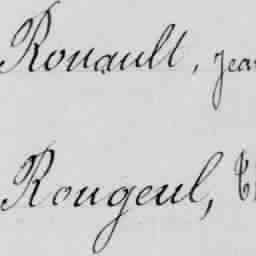 Rouault, Jea
Rougeul,